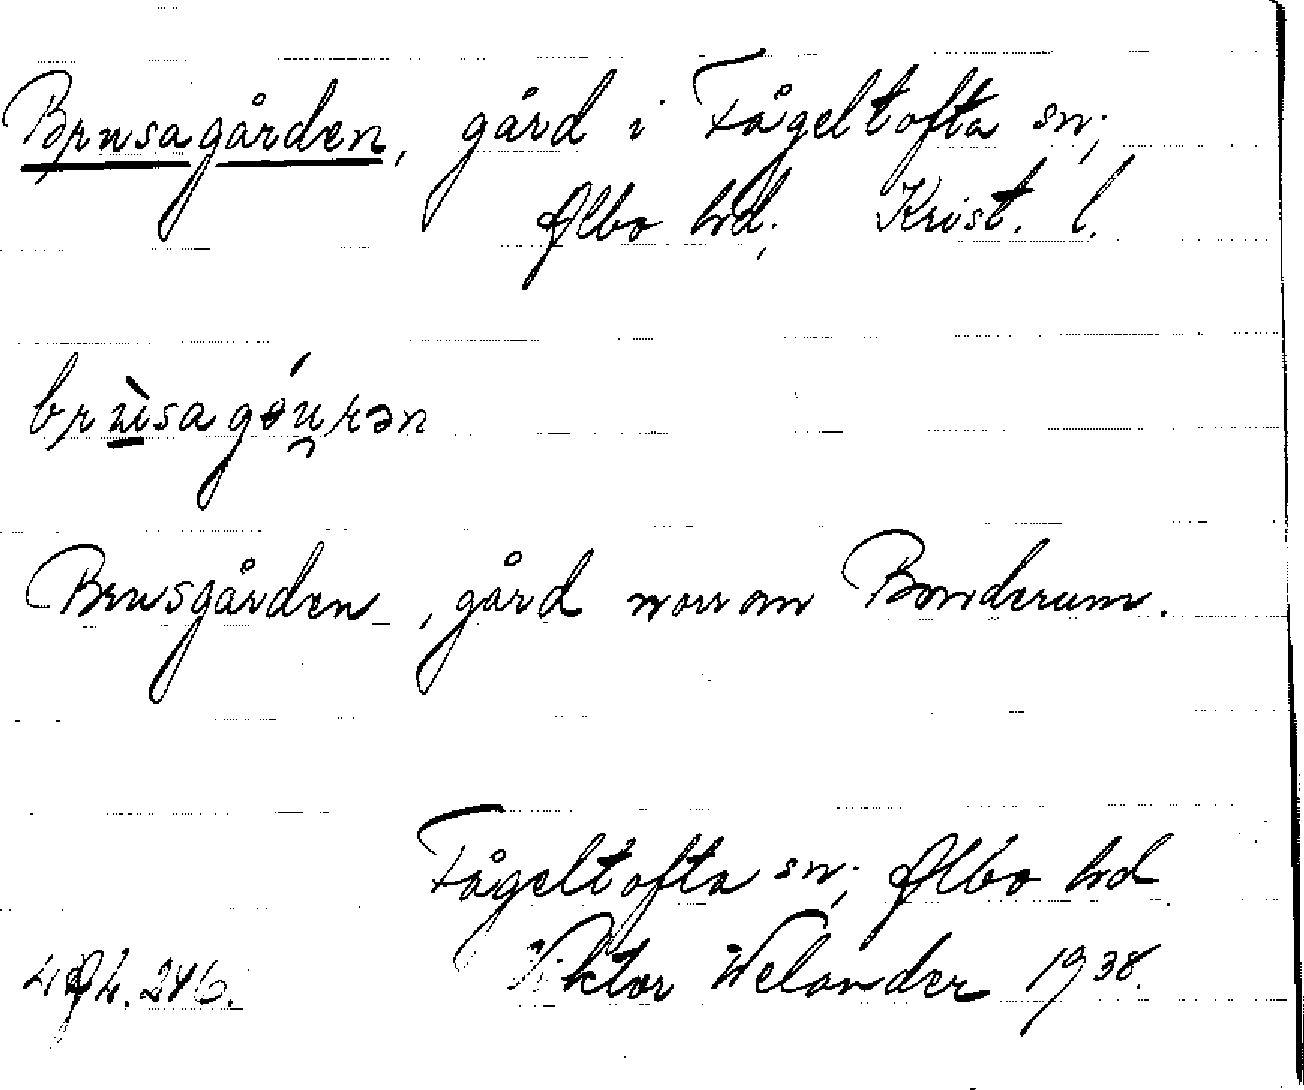 Brusagården, gård i Fågeltofta sn;
Albo hd; Krist. l.
brùsagóurən
Brusgården, gård norr om Bonderum.
Fågeltofta sn; Albo hd
Viktor Welander 1938.